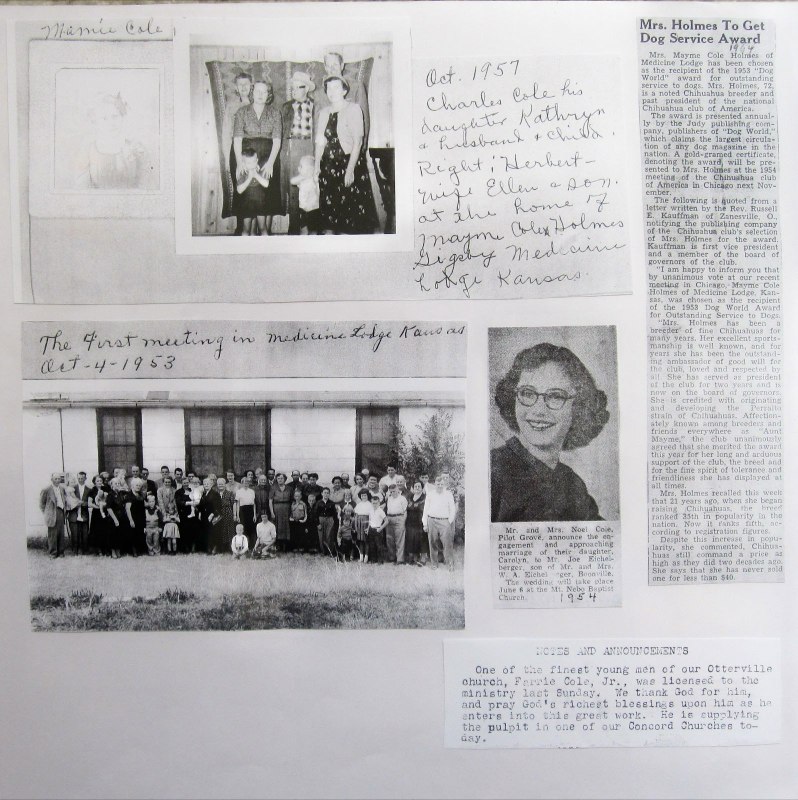 Mamie Cole
Oct. 1957
Charles Cole his
daughter Kathryn
& husband & child.
Right; Herbert-
wife Ellen & son.
at the home of
Mayme Cole Holmes
Gigsby Medicine
Lodge Kansas.
The First meeting in medicine Lodge Kansas
Oct-4-1953
Mr. and Mrs. Noel Cole,
Pilot Grove, announce the en-
gagement and approaching
marriage of their daughter,
Carolyn, to Mr. Joe Eichel-
berger, son of Mr. and Mrs.
W. A. Eichel ger, Boonville.
The wedding will take place
June 6 at the Mt. Nebo Baptist
Church.
1954
Mrs. Holmes To Get
Dog Service Award
Mrs. Mayme Cole Holmes of
Medicine Lodge has been chosen
as the recipient of the 1953 "Dog
World" award for outstanding
service to dogs. Mrs. Holmes, 72,
is a noted Chihuahua breeder and
past president of the national
Chihuahua club of America.
The award is presented annual-
ly by the Judy publishing com-
pany, publishers of "Dog World,"
which claims the largest circula-
tion of any dog magazine in the
nation. A gold-framed certificate,
denoting the award, will be pre-
sented to Mrs. Holmes at the 1954
meeting of the Chihuahua club
of America in Chicago next Nov-
ember.
The following is quoted from a
letter written by the Rev. Russell
E. Kauffman of Zanesville, O.,
notifying the publishing company
of the Chihuahua club's selection
of Mrs. Holmes for the award.
Kauffman is first vice president
and a member of the board of
governors of the club.
"I am happy to inform you that
by unanimous vote at our recent
meeting in Chicago, Mayme Cole
Holmes of Medicine Lodge, Kan-
sas, was chosen as the recipient
of the 1953 Dog World Award
for Outstanding Service to Dogs.
"Mrs. Holmes has been a
breeder of fine Chihuahuas for
many years. Her excellent sports-
manship is well known, and for
years she has been the outstand-
ing ambassador of good will for
the club, loved and respected by
all. She has served as president
of the club for two years and is
now on the board of governors.
She is credited with originating
and developing the Perraito
strain of Chihuahuas. Affection-
ately known among breeders and
friends everywhere as "Aunt
Mayme," the club unanimously
agreed that she merited the award
this year for her long and arduous
support of the club, the breed and
for the fine spirit of tolerance and
friendliness she has displayed at
all times.
Mrs. Holmes recalled this week
that 21 years ago, when she began
raising Chihuahuas, the breed
ranked 25th in popularity in the
nation. Now it ranks fifth, ac-
cording to registration figures.
Despite this increase in popu-
larity, she commented, Chihua-
huas still command a price as
high as they did two decades ago.
She says that she has never sold
one for less than $40.
NOTES AND ANNOUNCEMENTS
One of the finest young men of our Otterville
church, Ferrie Cole, Jr., was licensed to the
ministry last Sunday. We thank God for him,
and pray God's richest blessings upon him as he
enters into this great work. He is supplying
the pulpit in one of our Concord Churches to-
day.